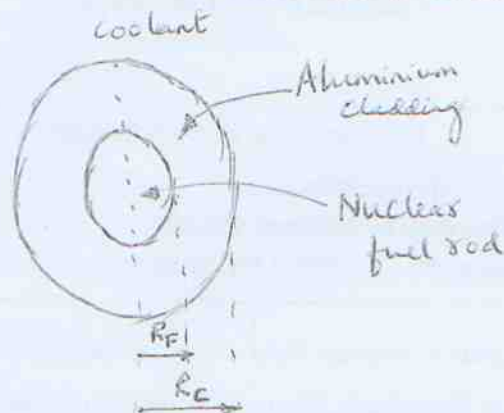 coolant
Aluminium
cladding
Nuclear
fuel rod
R_F
R_C